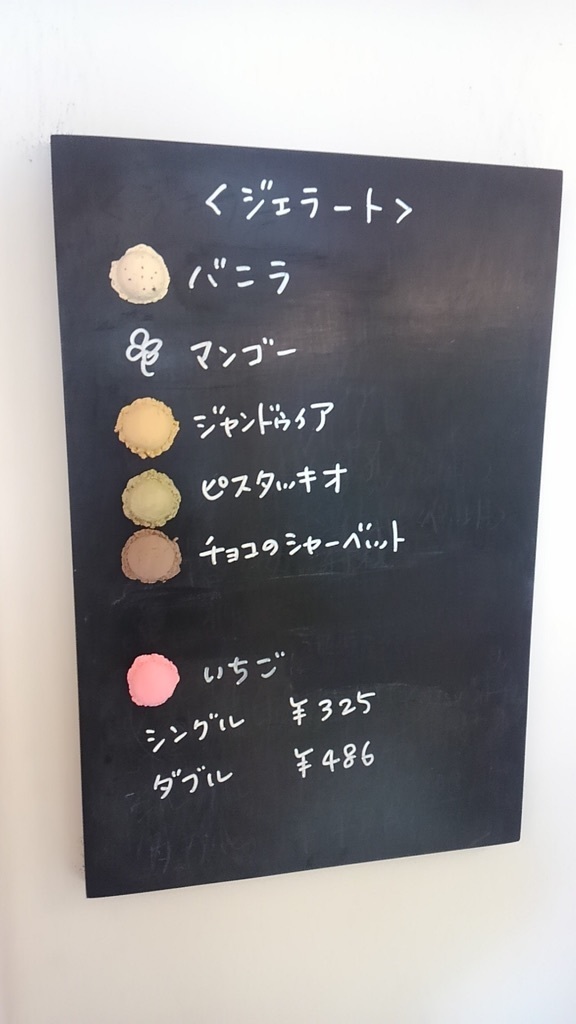 ＜ジェラート＞
バニラ
マンゴー
ジャンドゥイア
ピスタッキオ
チョコのシャーベット
いちご
シングル ¥325
ダブル ¥486